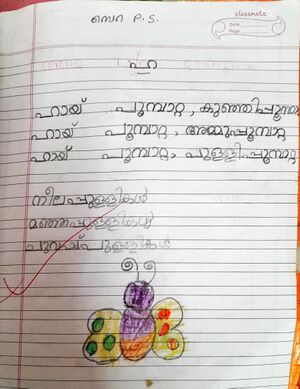 സെറ P.S.
classmate
Date
Page
ഹ
ഹായ് പൂമ്പാറ്റ, കുഞ്ഞിപ്പൂമ്പാ
ഹായ് പൂമ്പാറ്റ, അമ്മുപ്പൂമ്പാറ്റ
ഹായ് പൂമ്പാറ്റ, പുള്ളിപ്പൂമ്പാറ്റ
നീലപ്പുള്ളികൾ
മഞ്ഞപ്പുള്ളികൾ
ചുവപ്പ് പുള്ളികൾ